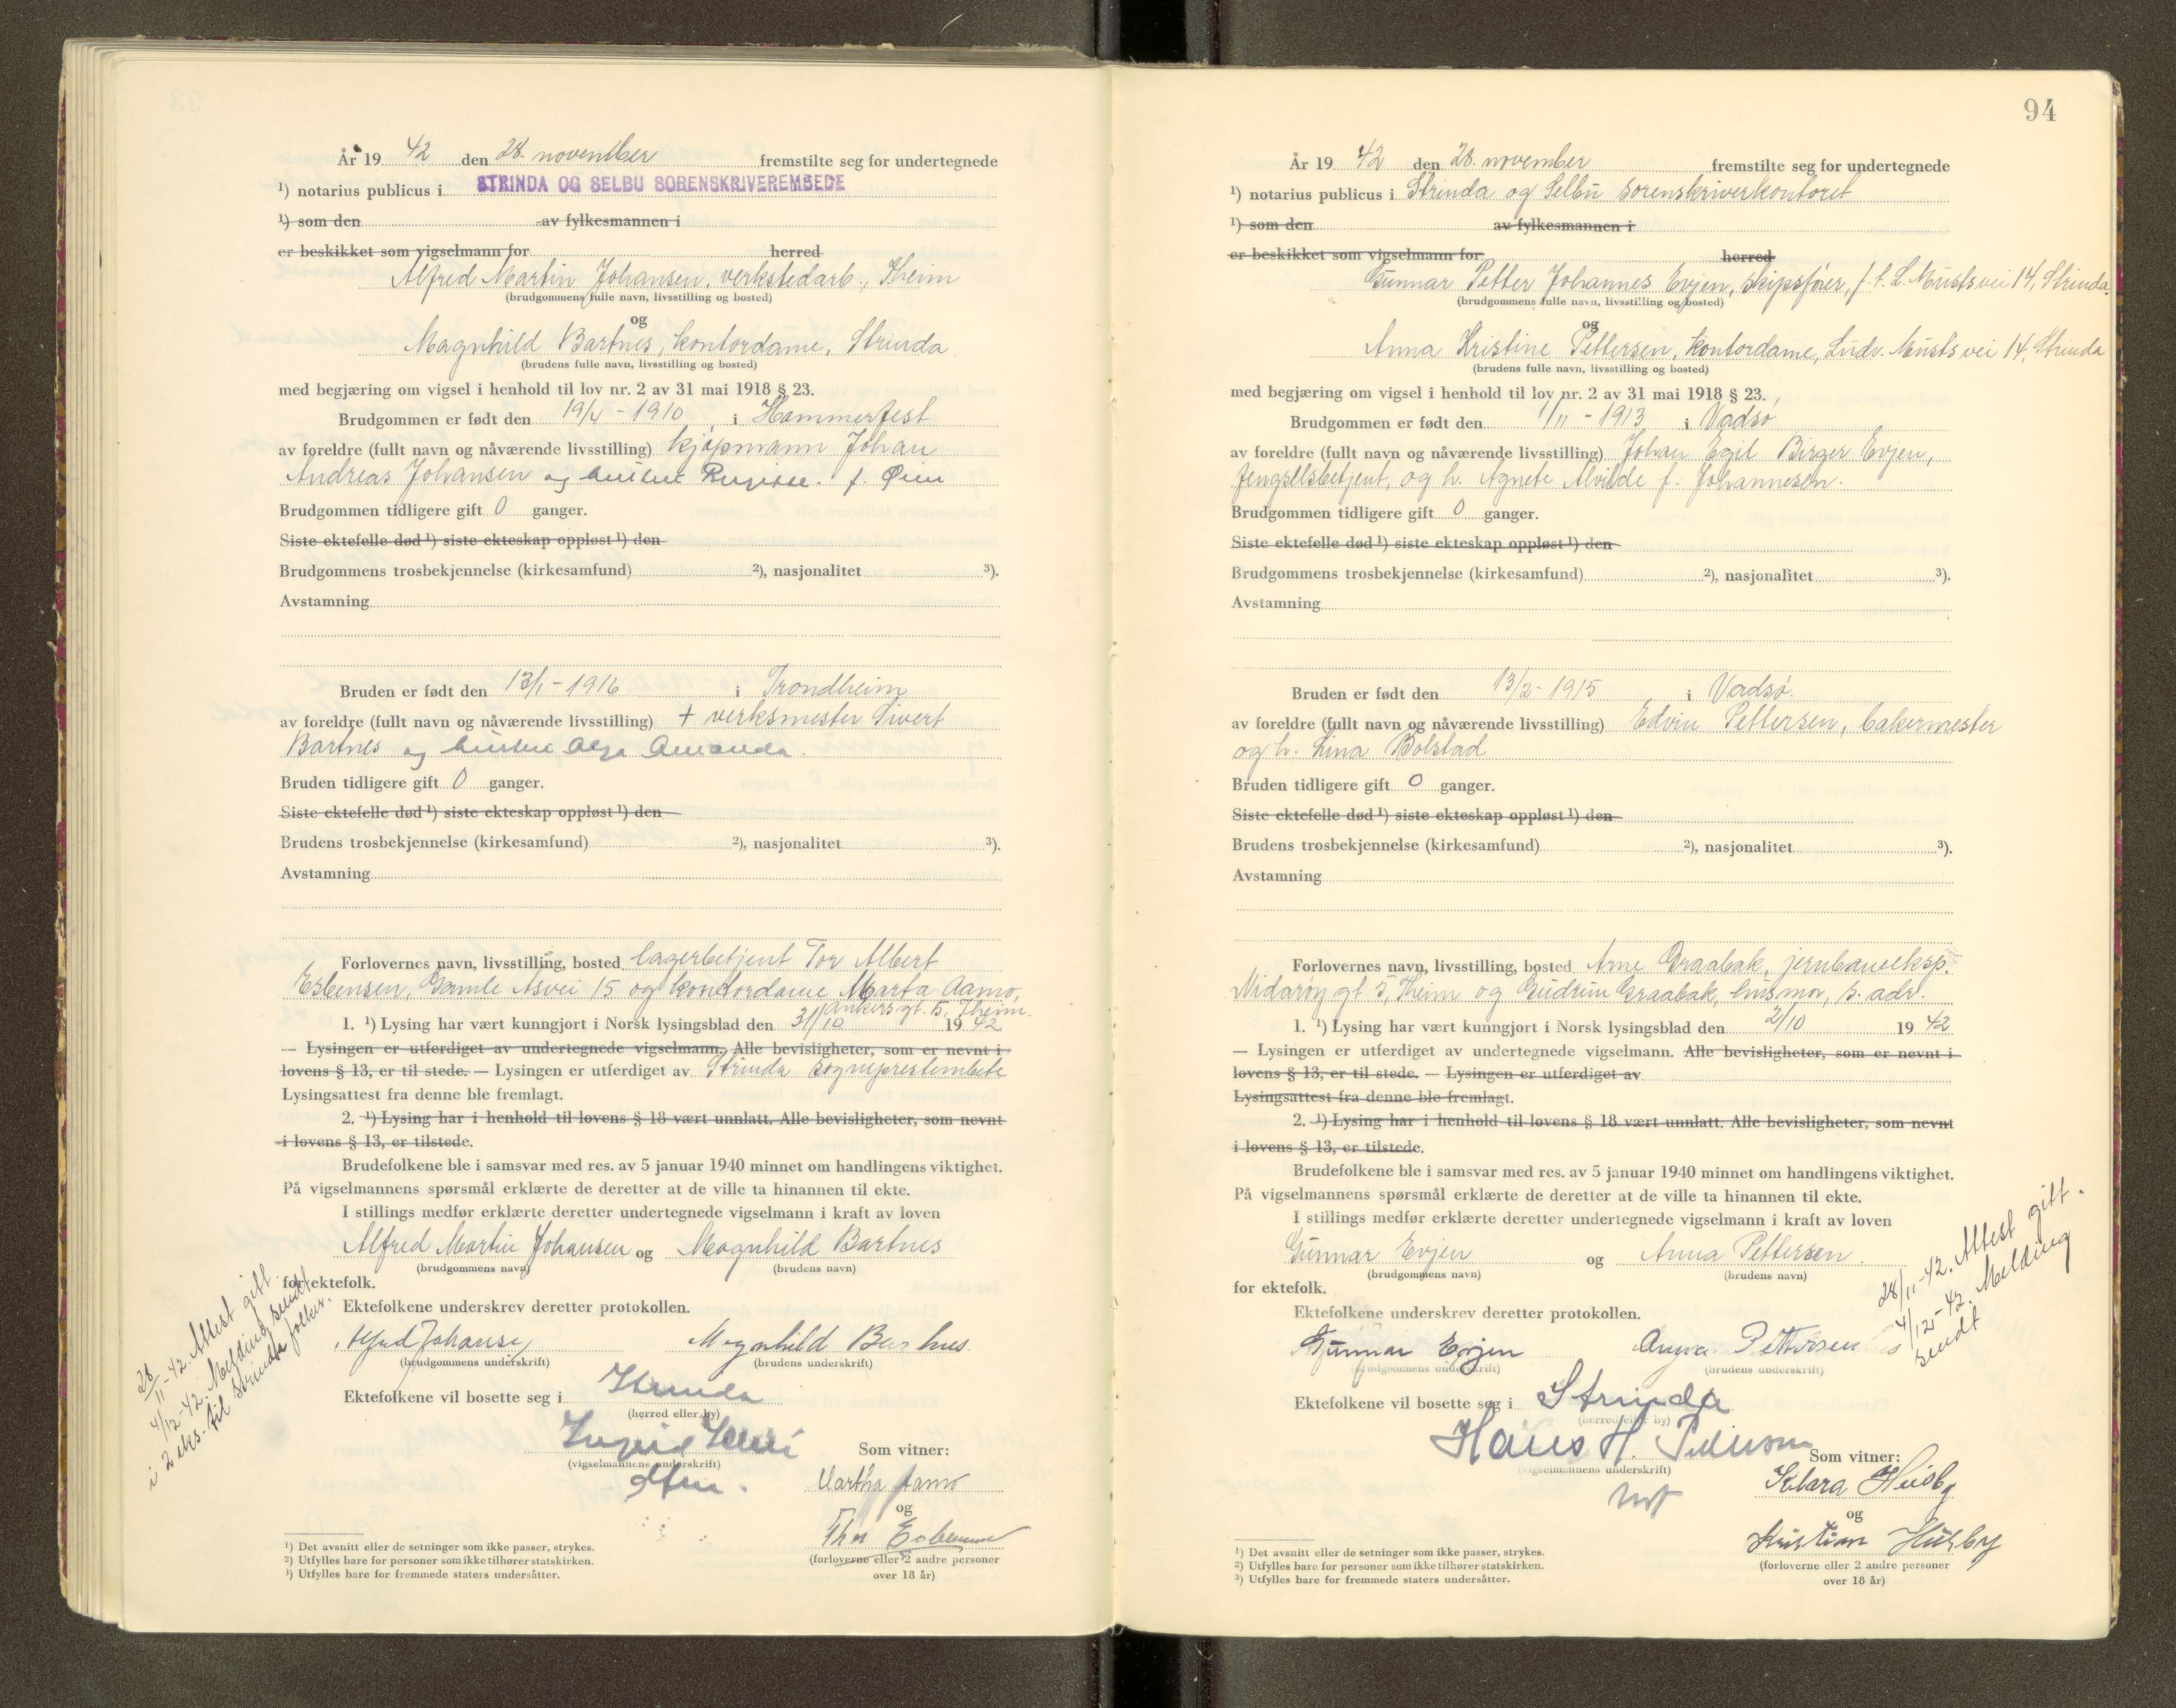 År 19 42 den 28. november fremstilte seg for undertegnede
¹) notarius publicus i STRINDA OG SELBU SORENSKRIVEREMBEDE
¹) som den av fylkesmannen i
er beskikket som vigselmann for herred
Alfred Martin Johansen, verkstedarb., Theim
(brudgommens fulle navn, livsstilling og bosted)
og
Magnhild Bartnes, kontordame, Strinda
(brudens fulle navn, livsstilling og bosted)
med begjæring om vigsel i henhold til lov nr. 2 av 31 mai 1918 § 23.
Brudgommen er født den 19/4 - 1910 i Hammerfest
av foreldre (fullt navn og nåværende livsstilling) kjøpmann Johan
Andreas Johansen og hustru f. Øien
Brudgommen tidligere gift 0 ganger.
Siste ektefelle død ¹) siste ekteskap oppløst ¹) den
Brudgommens trosbekjennelse (kirkesamfund) ²), nasjonalitet ³).
Avstamning
Bruden er født den 13/1 - 1916 i Trondheim
av foreldre (fullt navn og nåværende livsstilling) + verksmester Sivert
Bartnes og hustru Olga Amanda.
Bruden tidligere gift 0 ganger.
Siste ektefelle død ¹) siste ekteskap oppløst ¹) den
Brudens trosbekjennelse (kirkesamfund) ²), nasjonalitet ³).
Avstamning
Forlovernes navn, livsstilling, bosted lagerbetjent Tor Albert
Esbensen, Gamle Åsvei 15 og kontordame Marta Aamo,
Ankersgt. 5, Theim.
1. ¹) Lysing har vært kunngjort i Norsk lysingsblad den 31/10 19 42
— Lysingen er utferdiget av undertegnede vigselmann. Alle bevisligheter, som er nevnt i
lovens § 13, er til stede. — Lysingen er utferdiget av Strinda sogneprestembete
Lysingsattest fra denne ble fremlagt.
2. ¹) Lysing har i henhold til lovens § 18 vært unnlatt. Alle bevisligheter, som nevnt
i lovens § 13, er tilstede.
Brudefolkene ble i samsvar med res. av 5 januar 1940 minnet om handlingens viktighet.
På vigselmannens spørsmål erklærte de deretter at de ville ta hinannen til ekte.
I stillings medfør erklærte deretter undertegnede vigselmann i kraft av loven
Alfred Martin Johansen og Magnhild Bartnes
(brudgommens navn) (brudens navn)
for ektefolk.
Ektefolkene underskrev deretter protokollen.
Alfred Johansen Magnhild Bartnes
(brudgommens underskrift) (brudens underskrift)
Ektefolkene vil bosette seg i Strinda
(herred eller by)
Som vitner:
(vigselmannens underskrift)
Martha Aamo
og
Thor Esbensen
(forloverne eller 2 andre personer
over 18 år)
28/11-42. Attest gitt.
4/12-42. Melding sendt
i 2 eks. til Strinda folker.
¹) Det avsnitt eller de setninger som ikke passer, strykes.
²) Utfylles bare for personer som ikke tilhører statskirken.
³) Utfylles bare for fremmede staters undersåtter.
94
År 19 42 den 28. november fremstilte seg for undertegnede
¹) notarius publicus i Strinda og Selbu sorenskriverkontoret
¹) som den av fylkesmannen i
er beskikket som vigselmann for herred
Gunnar Petter Johannes Evjen, skipsfører, f. t. L. Mustsvei 14, Strinda.
(brudgommens fulle navn, livsstilling og bosted)
og
Anna Kristine Pettersen, kontordame, Ludv. Musts vei 14, Strinda
(brudens fulle navn, livsstilling og bosted)
med begjæring om vigsel i henhold til lov nr. 2 av 31 mai 1918 § 23.
Brudgommen er født den 1/11 - 1913 i Vadsø
av foreldre (fullt navn og nåværende livsstilling) Johan Egil Birger Evjen,
fengselsbetjent, og h. Agnete Alvilde f. Johannesen.
Brudgommen tidligere gift 0 ganger.
Siste ektefelle død ¹) siste ekteskap oppløst ¹) den
Brudgommens trosbekjennelse (kirkesamfund) ²), nasjonalitet ³).
Avstamning
Bruden er født den 13/2 - 1915 i Vadsø.
av foreldre (fullt navn og nåværende livsstilling) Edvin Pettersen, bakermester
og h. Lina Bolstad
Bruden tidligere gift 0 ganger.
Siste ektefelle død ¹) siste ekteskap oppløst ¹) den
Brudens trosbekjennelse (kirkesamfund) ²), nasjonalitet ³).
Avstamning
Forlovernes navn, livsstilling, bosted Arne Graabak, jernbaneeksp.
Nidarøy gt 5, Theim og Gudrun Graabak, husmor, s. adr.
1. ¹) Lysing har vært kunngjort i Norsk lysingsblad den 2/10 19 42
— Lysingen er utferdiget av undertegnede vigselmann. Alle bevisligheter, som er nevnt i
lovens § 13, er til stede. — Lysingen er utferdiget av
Lysingsattest fra denne ble fremlagt.
2. ¹) Lysing har i henhold til lovens § 18 vært unnlatt. Alle bevisligheter, som nevnt
i lovens § 13, er tilstede.
Brudefolkene ble i samsvar med res. av 5 januar 1940 minnet om handlingens viktighet.
På vigselmannens spørsmål erklærte de deretter at de ville ta hinannen til ekte.
I stillings medfør erklærte deretter undertegnede vigselmann i kraft av loven
Gunnar Evjen og Anna Pettersen.
(brudgommens navn) (brudens navn)
for ektefolk.
Ektefolkene underskrev deretter protokollen.
Gunnar Evjen Anna Pettersen
(brudgommens underskrift) (brudens underskrift)
28/11-42. Attest gitt.
4/12-42. Melding
sendt
Ektefolkene vil bosette seg i Strinda
(herred eller by)
Hans H. Som vitner:
(vigselmannens underskrift)
Klara Husby
og
Kristian Husby
(forloverne eller 2 andre personer
over 18 år)
¹) Det avsnitt eller de setninger som ikke passer, strykes.
²) Utfylles bare for personer som ikke tilhører statskirken.
³) Utfylles bare for fremmede staters undersåtter.